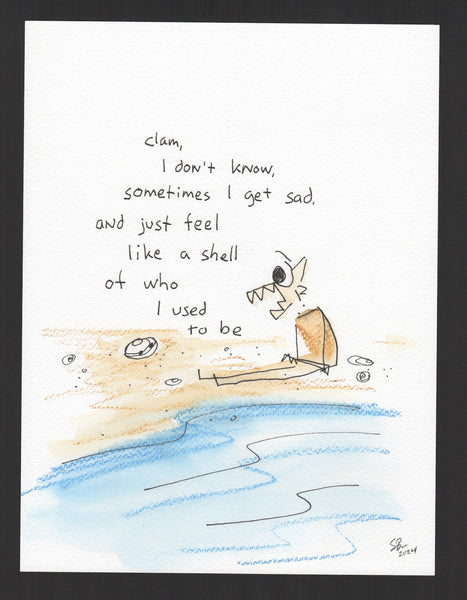 clam,
I don't know,
sometimes I get sad.
and just feel
like a shell
of who
I used
to be
2024